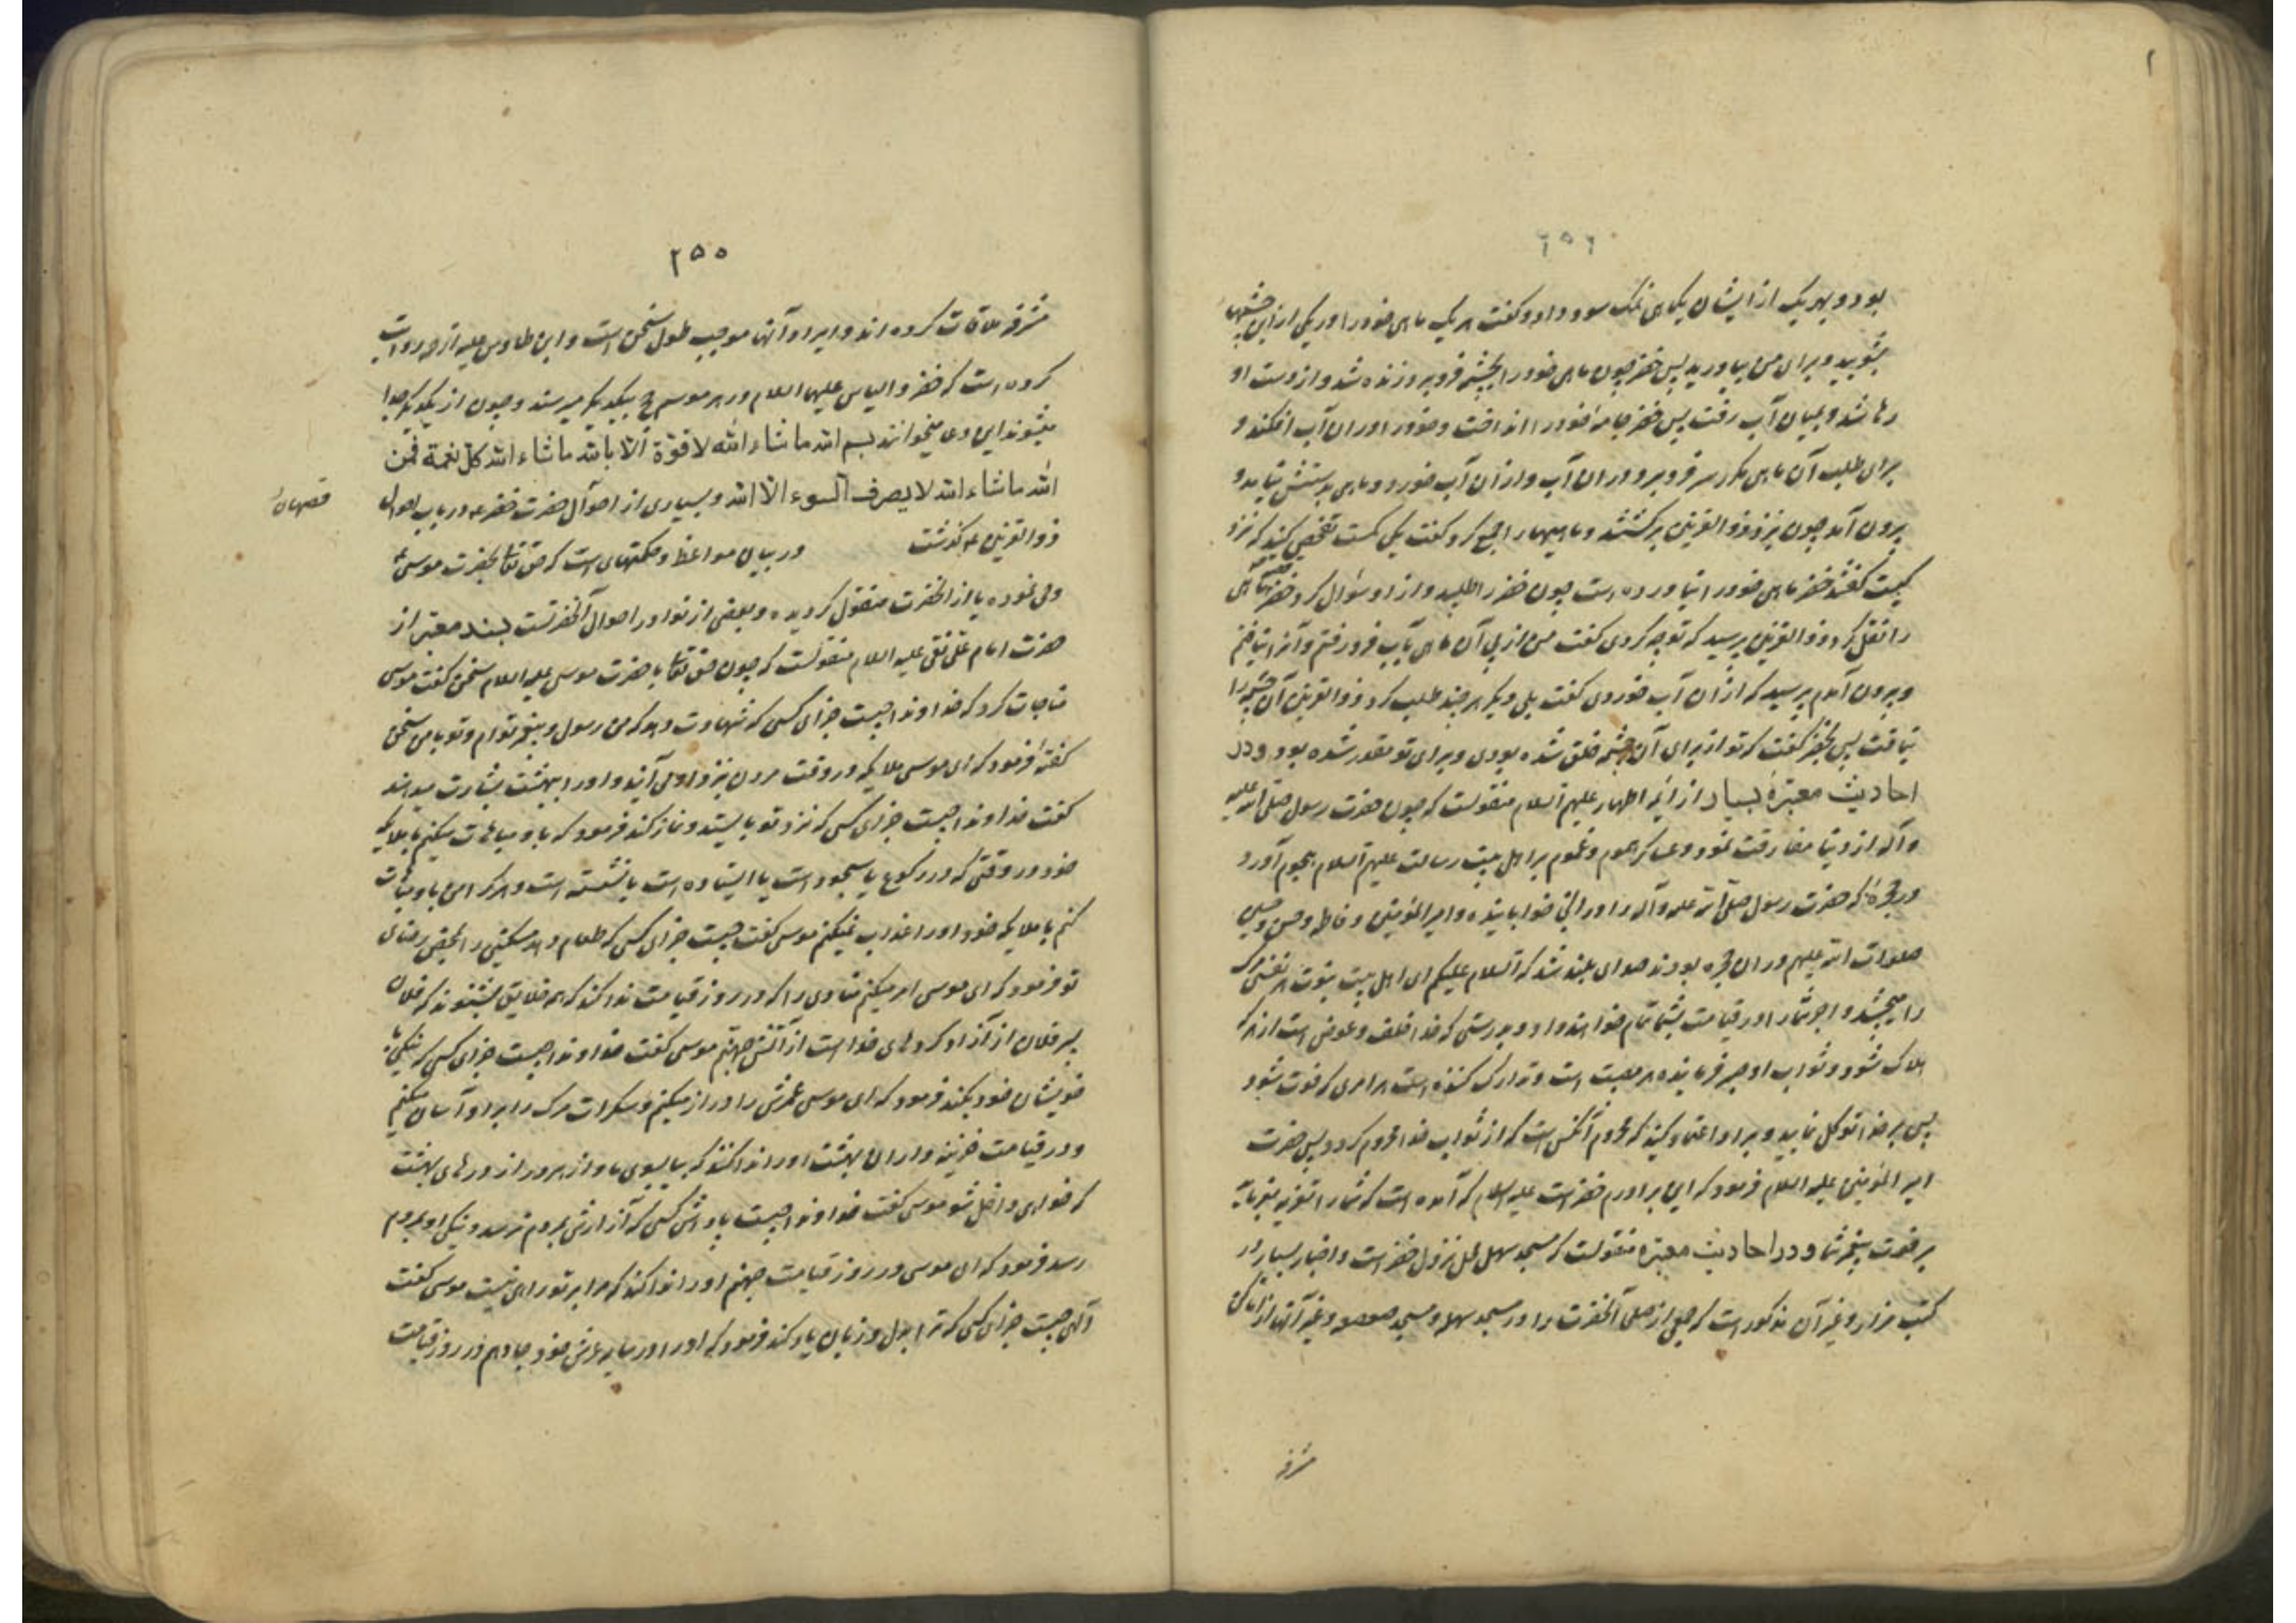 ۲۵۴
بود و بهر یک از ایشان یکماهی نمک سود داد و گفت هر یک ماهی خود را در یکی ازین چشمها
بشوئید و برای من بیاورید پس خضر چون ماهی خود را بچشمه فرو برد زنده شد و از دست او
رها شد و بمیان آب رفت پس خضر جامهٔ خود را انداخت و خود را در ان آب افکند و
برای طلب آن ماهی مکرر سر فرو برد در ان آب و از آن آب خورد و ماهی بدستش نیامد و
بیرون آمد چون بنزد ذوالقرنین برگشتند و ماهیها را جمع کرد گفت یکی کمست تفحص کنید که نزد
کیست گفتند خضر ماهی خود را نیاورده است چون خضر را طلبید و از او سؤال کرد خضر قصه ماهی
را نقل کرد ذوالقرنین پرسید که تو چه کردی گفت من از پی آن ماهی بآب فرو رفتم و آنرا نیافتم
و بیرون آمدم پرسید که از ان آب خوردی گفت بلی دیگر هر چند طلب کرد ذوالقرنین آن چشمه را
نیافت پس بخضر گفت که تو از برای آن چشمه خلق شده بودی و برای تو مقدر شده بود و در
احادیث معتبرهٔ بسیار از ائمه اطهار علیهم السلام منقولست که چون حضرت رسول صلی الله علیه
و آله از دنیا مفارقت نمود و عساکر هموم و غموم بر اهل بیت رسالت علیهم السلام هجوم آورد
در حجرهٔ که حضرت رسول صلی الله علیه و آله را در انجا خوابانیده و امیر المؤمنین و فاطمه و حسن و حسین
صلوات الله علیهم در ان حجره بودند صدای بلند شد که السلام علیکم ای اهل بیت نبوت هر نفسی مرگ
را میچشد و اجر شما را در قیامت بشما تمام خواهند داد و بدرستی که خدا خلف و عوض است از هر که
هلاک شود و ثواب او جبر فرماینده هر مصیبت است و تدارک کننده است هر امری که فوت شود
پس بر خدا توکل نمایید و بر او اعتماد کنید که محروم آنکس است که از ثواب خدا محروم گردد پس حضرت
امیر المؤمنین علیه السلام فرمود که این برادرم خضر است علیه السلام که آمده است که شما را تعزیه بفرماید
بر فوت پیغمبر شما و در احادیث معتبره منقولست که مسجد سهله محل نزول خضر است و اخبار بسیار در
کتب مزار و غیر آن مذکور است که جمعی از صلحا آنحضرت را در مسجد سهله و مسجد صعصعه و غیر آنها از اماکن
مشرفه
۲۵۵
مشرفه ملاقات کرده اند و ایراد آنها موجب طول سخن است و ابن طاوس علیه الرحمه روایت
کرده است که خضر و الیاس علیهما السلام در هر موسم حج بیکدیگر میرسند و چون از یکدیگر جدا
میشوند این دعا میخوانند بسم الله ما شاء الله لا قوة الا بالله ما شاء الله کل نعمة فمن
الله ما شاء الله لا یصرف السوء الا الله و بسیاری از احوال حضرت خضر ع در باب احوال
ذو القرنین ع گذشت در بیان مواعظ و حکمتهای است که حق تعا بحضرت موسی ع
وحی نموده یا از انحضرت منقول گردیده و بعضی از نوادر احوال آنحضرتست بسند معتبر از
حضرت امام علی نقی علیه السلام منقولست که چون حق تعا با حضرت موسی علیه السلام سخن گفت موسی
مناجات کرد که خداوندا چیست جزای کسی که شهادت دهد که من رسول و پیغمبر توام و تو با من سخن
گفتهٔ فرمود که ای موسی ملایکه در وقت مردن نزد او می آیند و او را ببهشت بشارت میدهند
گفت خداوندا چیست جزای کسی که نزد تو بایستد و نماز کند فرمود که باو مباهات میکنم با ملایکه
خود در وقتی که در رکوع یا سجود است یا ایستاده است یا نشسته است و هر که امن باو مباهات
کنم با ملایکه خود او را عذاب نمیکنم موسی گفت چیست جزای کسی که طعام دهد مسکینی را بمحض رضای
تو فرمود که ای موسی امر میکنم منادی را که در روز قیامت ندا کند که همه خلایق بشنوند که فلان
پسر فلان از آزاد کردهای خدا است از آتش جهنم موسی گفت خداوندا چیست جزای کسی که نیکی با
خویشان خود بکند فرمود که ای موسی عمرش را دراز میکنم و سکرات مرگ را بر او آسان میکنم
و در قیامت خزینه داران بهشت او را ندا کنند که بیا بسوی ما و از هر در از درهای بهشت
که خواهی داخل شو موسی گفت خداوندا چیست پاداش کسی که آزارش بمردم نرسد و نیکی او بمردم
رسد فرمود که ای موسی در روز قیامت جهنم او را ندا کند که مرا بر تو راهی نیست موسی گفت
الهی چیست جزای کسی که ترا بدل و زبان یاد کند فرمود که او را در سایه عرش خود جا دهم در روز قیامت